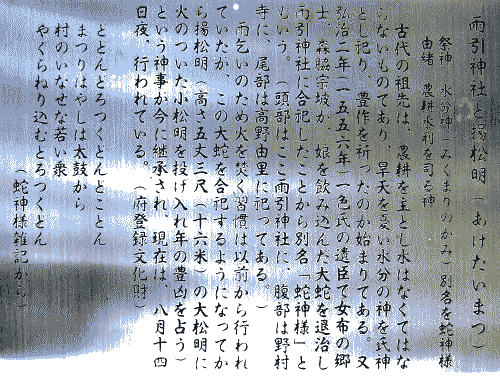 雨引神社と揚松明（あげたいまつ）
祭神　水分神（みくまりのかみ）別名を蛇神様
由緒　農耕水利を司る神
古代の祖先は、農耕を主とし水はなくてはな
らないものであり、旱天を憂い水分の神を氏神
とし祀り、豊作を祈ったのが始まりである。又
弘治二年（一五五六年）一色氏の遺臣で女布の郷
士、森脇宗坡が、娘を飲み込んだ大蛇を退治し
雨引神社に合祀したことから別名「蛇神様」と
もいう。（頭部はここ雨引神社に、腹部は野村
寺に、尾部は高野由里に祀ってある。）
雨乞いのため火を焚く習慣は以前から行われ
ていたが、この大蛇を合祀するようになってか
ら揚松明（高さ五丈三尺（十六米）の大松明に
火のついた小松明を投げ入れ年の豊凶を占う）
という神事が今に継承され、現在は、八月十四
日夜、行われている。（府登録文化財）
ととんとろつくとんとことん
まつりはやしは太鼓から
村のいなせな若い衆
やぐらねり込むとろつくとん
（蛇神様雑記から）